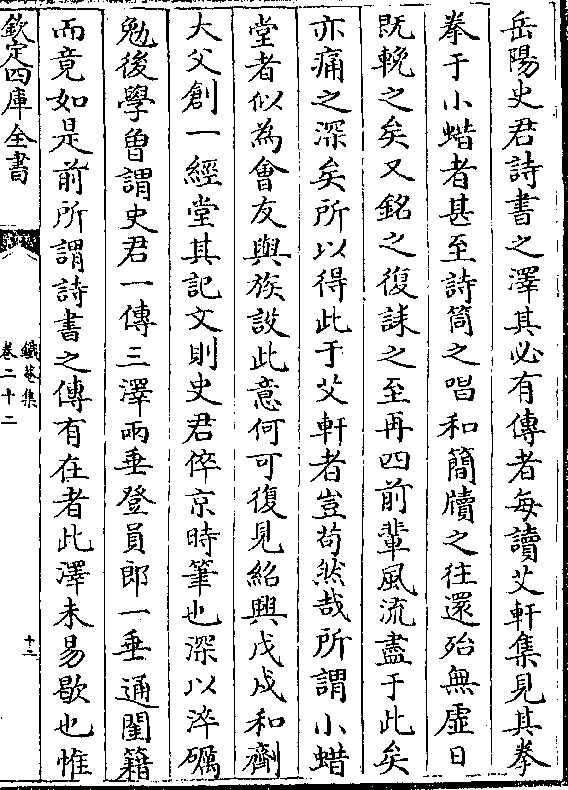 岳陽史君詩書之澤其必有傳者每讀艾軒集見其拳
拳于小蜡者甚至詩筒之唱和簡牘之往還殆無虛日
既輓之矣又銘之復誄之至再四前輩風流盡于此矣
亦痛之深矣所以得此于艾軒者豈苟然哉所謂小蜡
堂者似為會友與族設此意何可復見紹興戊戍和劑
大父創一經堂其記文則史君倅京時筆也深以淬礪
勉後學曾謂史君一傳三澤兩垂登員郎一垂通閨籍
而竟如是前所謂詩書之傳有在者此澤未易歇也惟
欽定四庫全書
鐵菴集
卷二十二
十二